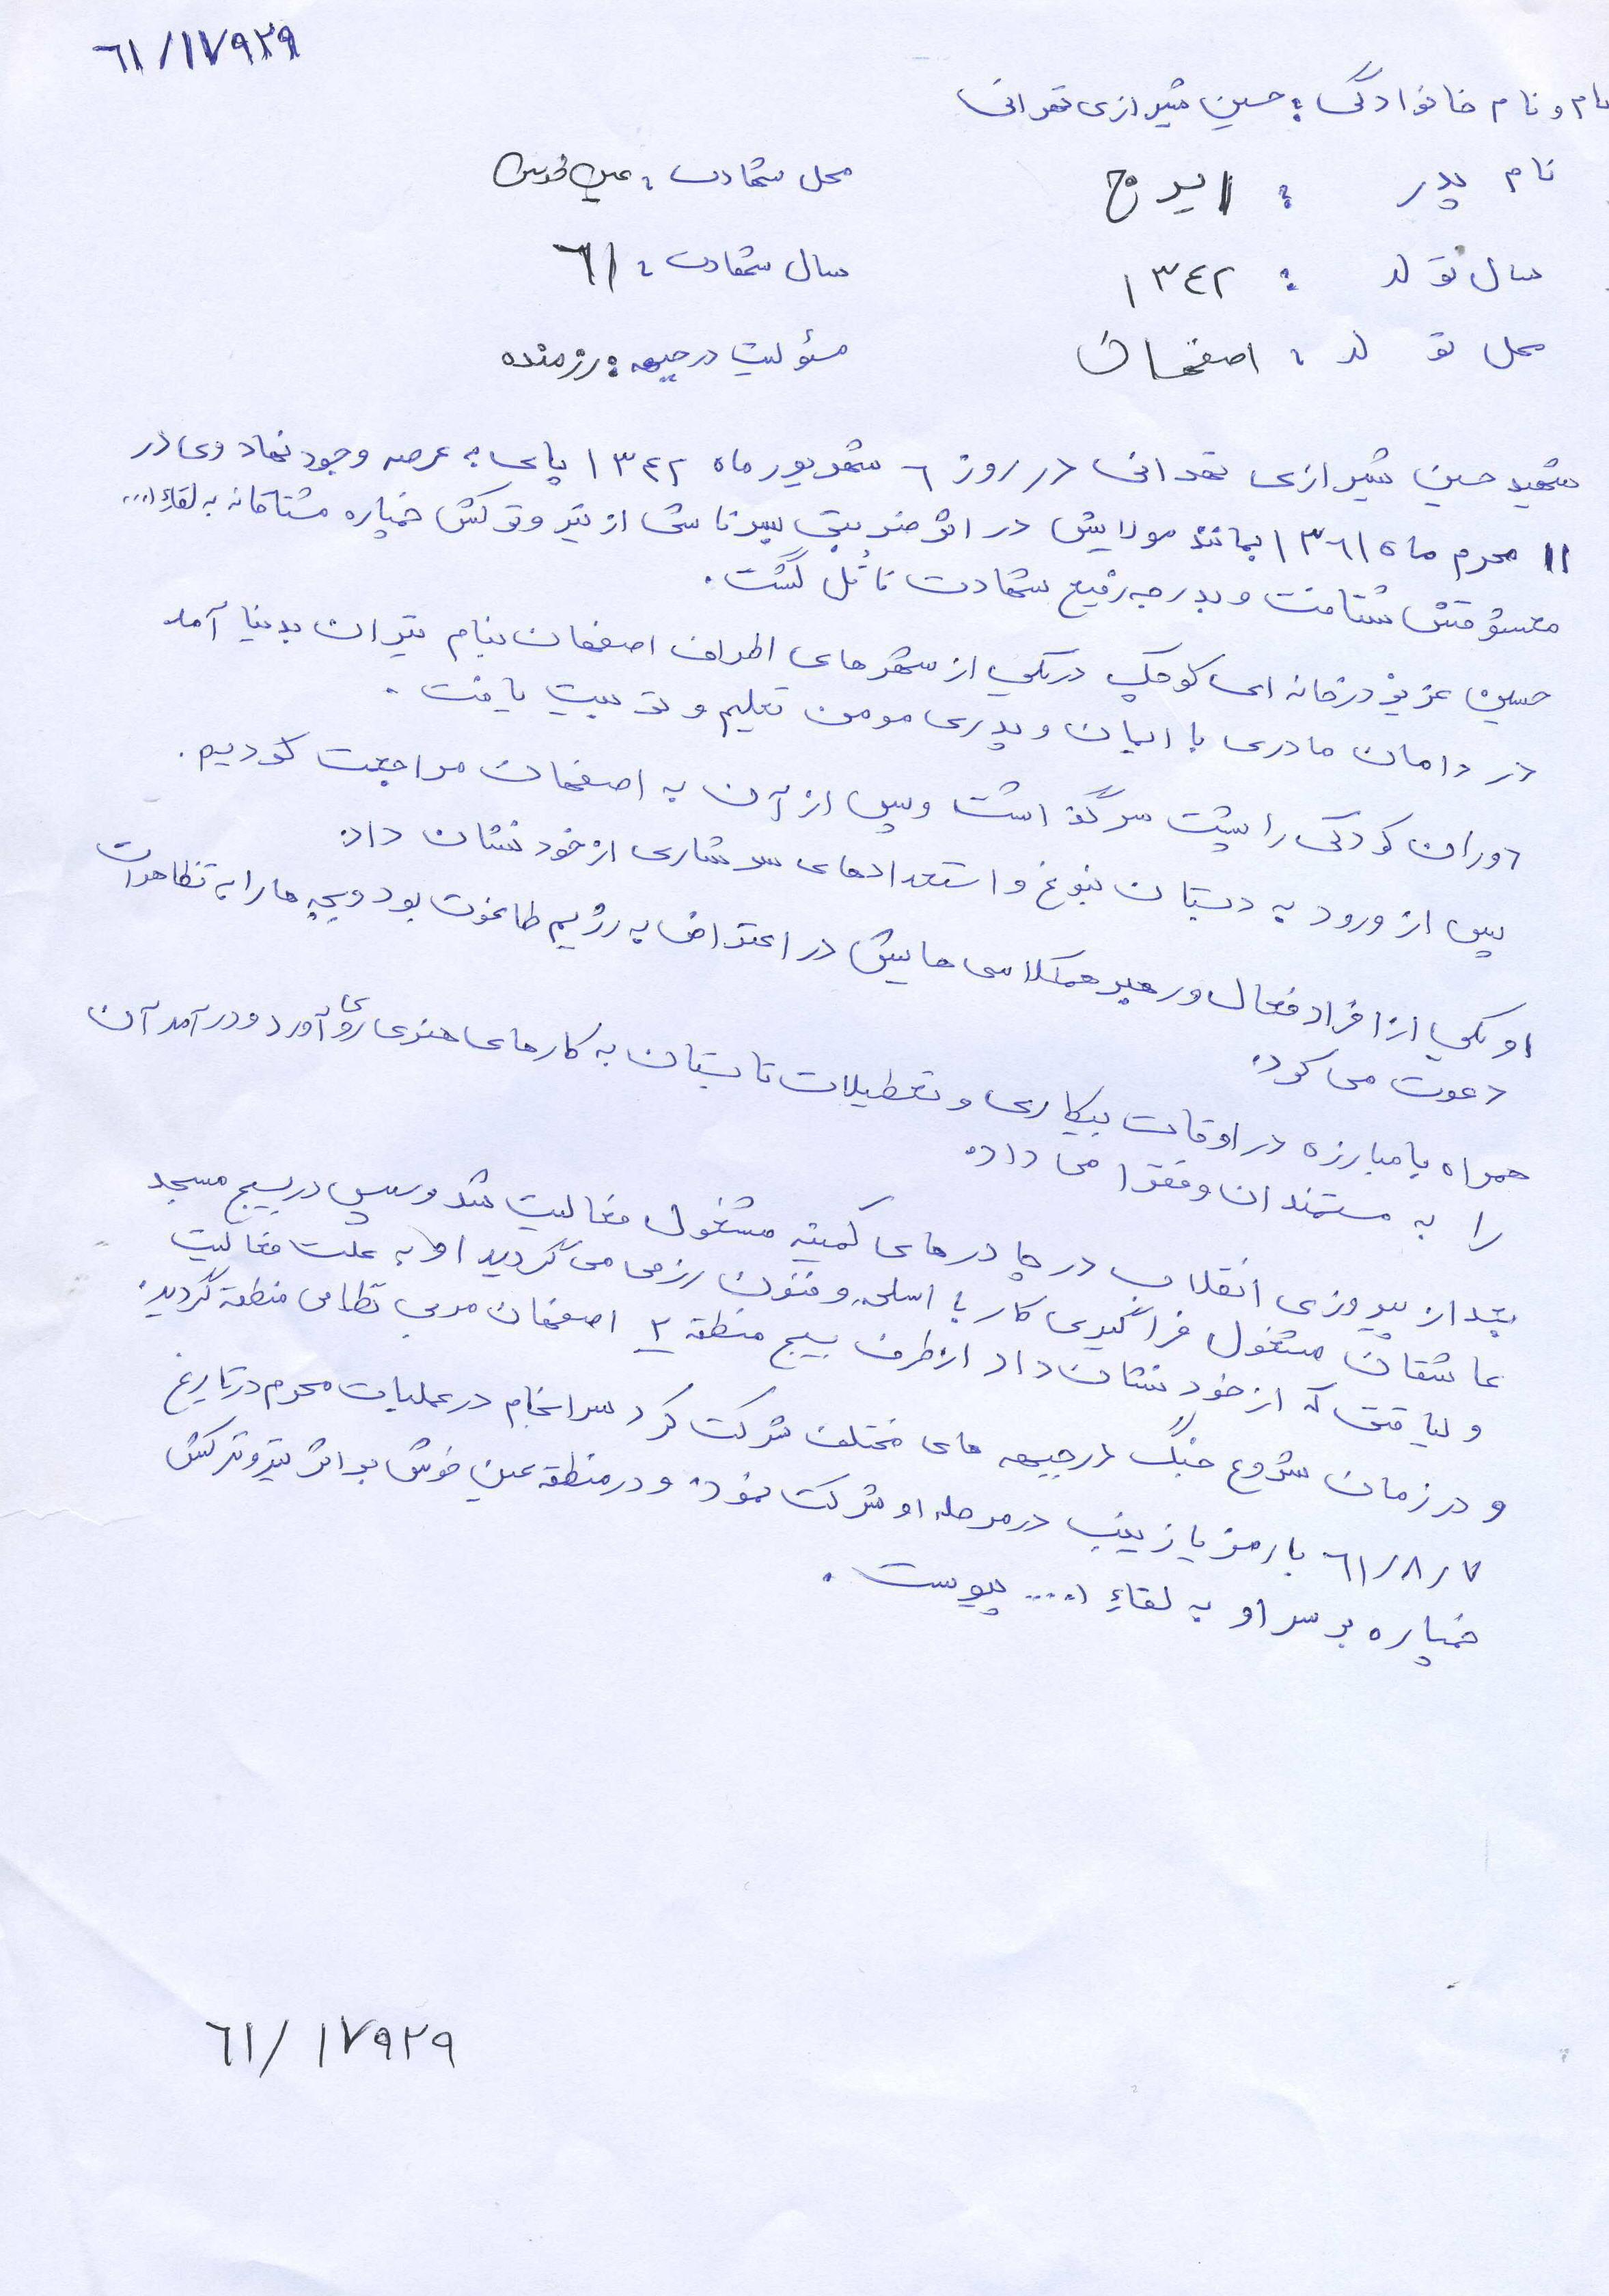 ٦١/١٧٩٢٩
نام و نام خانوادگی : حسین شیرازی تهرانی
نام پدر : ایرج محل شهادت : عین خوش
سال تولد : ١٣٤٢ سال شهادت : ٦١
محل تولد : اصفهان مسئولیت در جبهه : رزمنده
شهید حسین شیرازی تهرانی در روز ٦ شهریور ماه ١٣٤٢ پای به عرصه وجود نهاد وی در
١١ محرم ماه ١٣٦١ بمانند مولایش در اثر ضربتی بسر ناشی از تیر و ترکش خمپاره مشتاقانه به لقاء ا...
معشوقش شتافت و بدرجه رفیع شهادت نائل گشت .
حسین عزیز در خانه ای کوچک در یکی از شهرهای اطراف اصفهان بنام تیران بدنیا آمد
در دامان مادری با ایمان و پدری مومن تعلیم و تربیت یافت .
دوران کودکی را پشت سر گذاشت و پس از آن به اصفهان مراجعت کردیم .
پس از ورود به دبستان نبوغ و استعدادهای سرشاری از خود نشان داد.
او یکی از افراد فعال و رهبر همکلاسی هایش در اعتراض به رژیم طاغوت بود و بچه ها را به تظاهرات
دعوت می کرد.
همراه با مبارزه در اوقات بیکاری و تعطیلات تابستان به کارهای هنری روی آورد و درآمد آن
را به مستمندان و فقرا می داد.
بعد از پیروزی انقلاب در چادرهای کمیته مشغول فعالیت شد و سپس در بسیج مسجد
عاشقان مشغول فراگیری کار با اسلحه و فنون رزمی می گردید او به علت فعالیت
و لیاقتی که از خود نشان داد از طرف بسیج منطقه ٢ اصفهان مربی نظامی منطقه گردید.
و در زمان شروع جنگ در جبهه های مختلف شرکت کرد سرانجام در عملیات محرم در تاریخ
٦١/٨/٧ با رمز یا زینب در مرحله او شرکت نمود. و در منطقه عین خوش بر اثر تیر و ترکش
خمپاره بر سر او به لقاء ا.... پیوست .
٦١/١٧٩٢٩